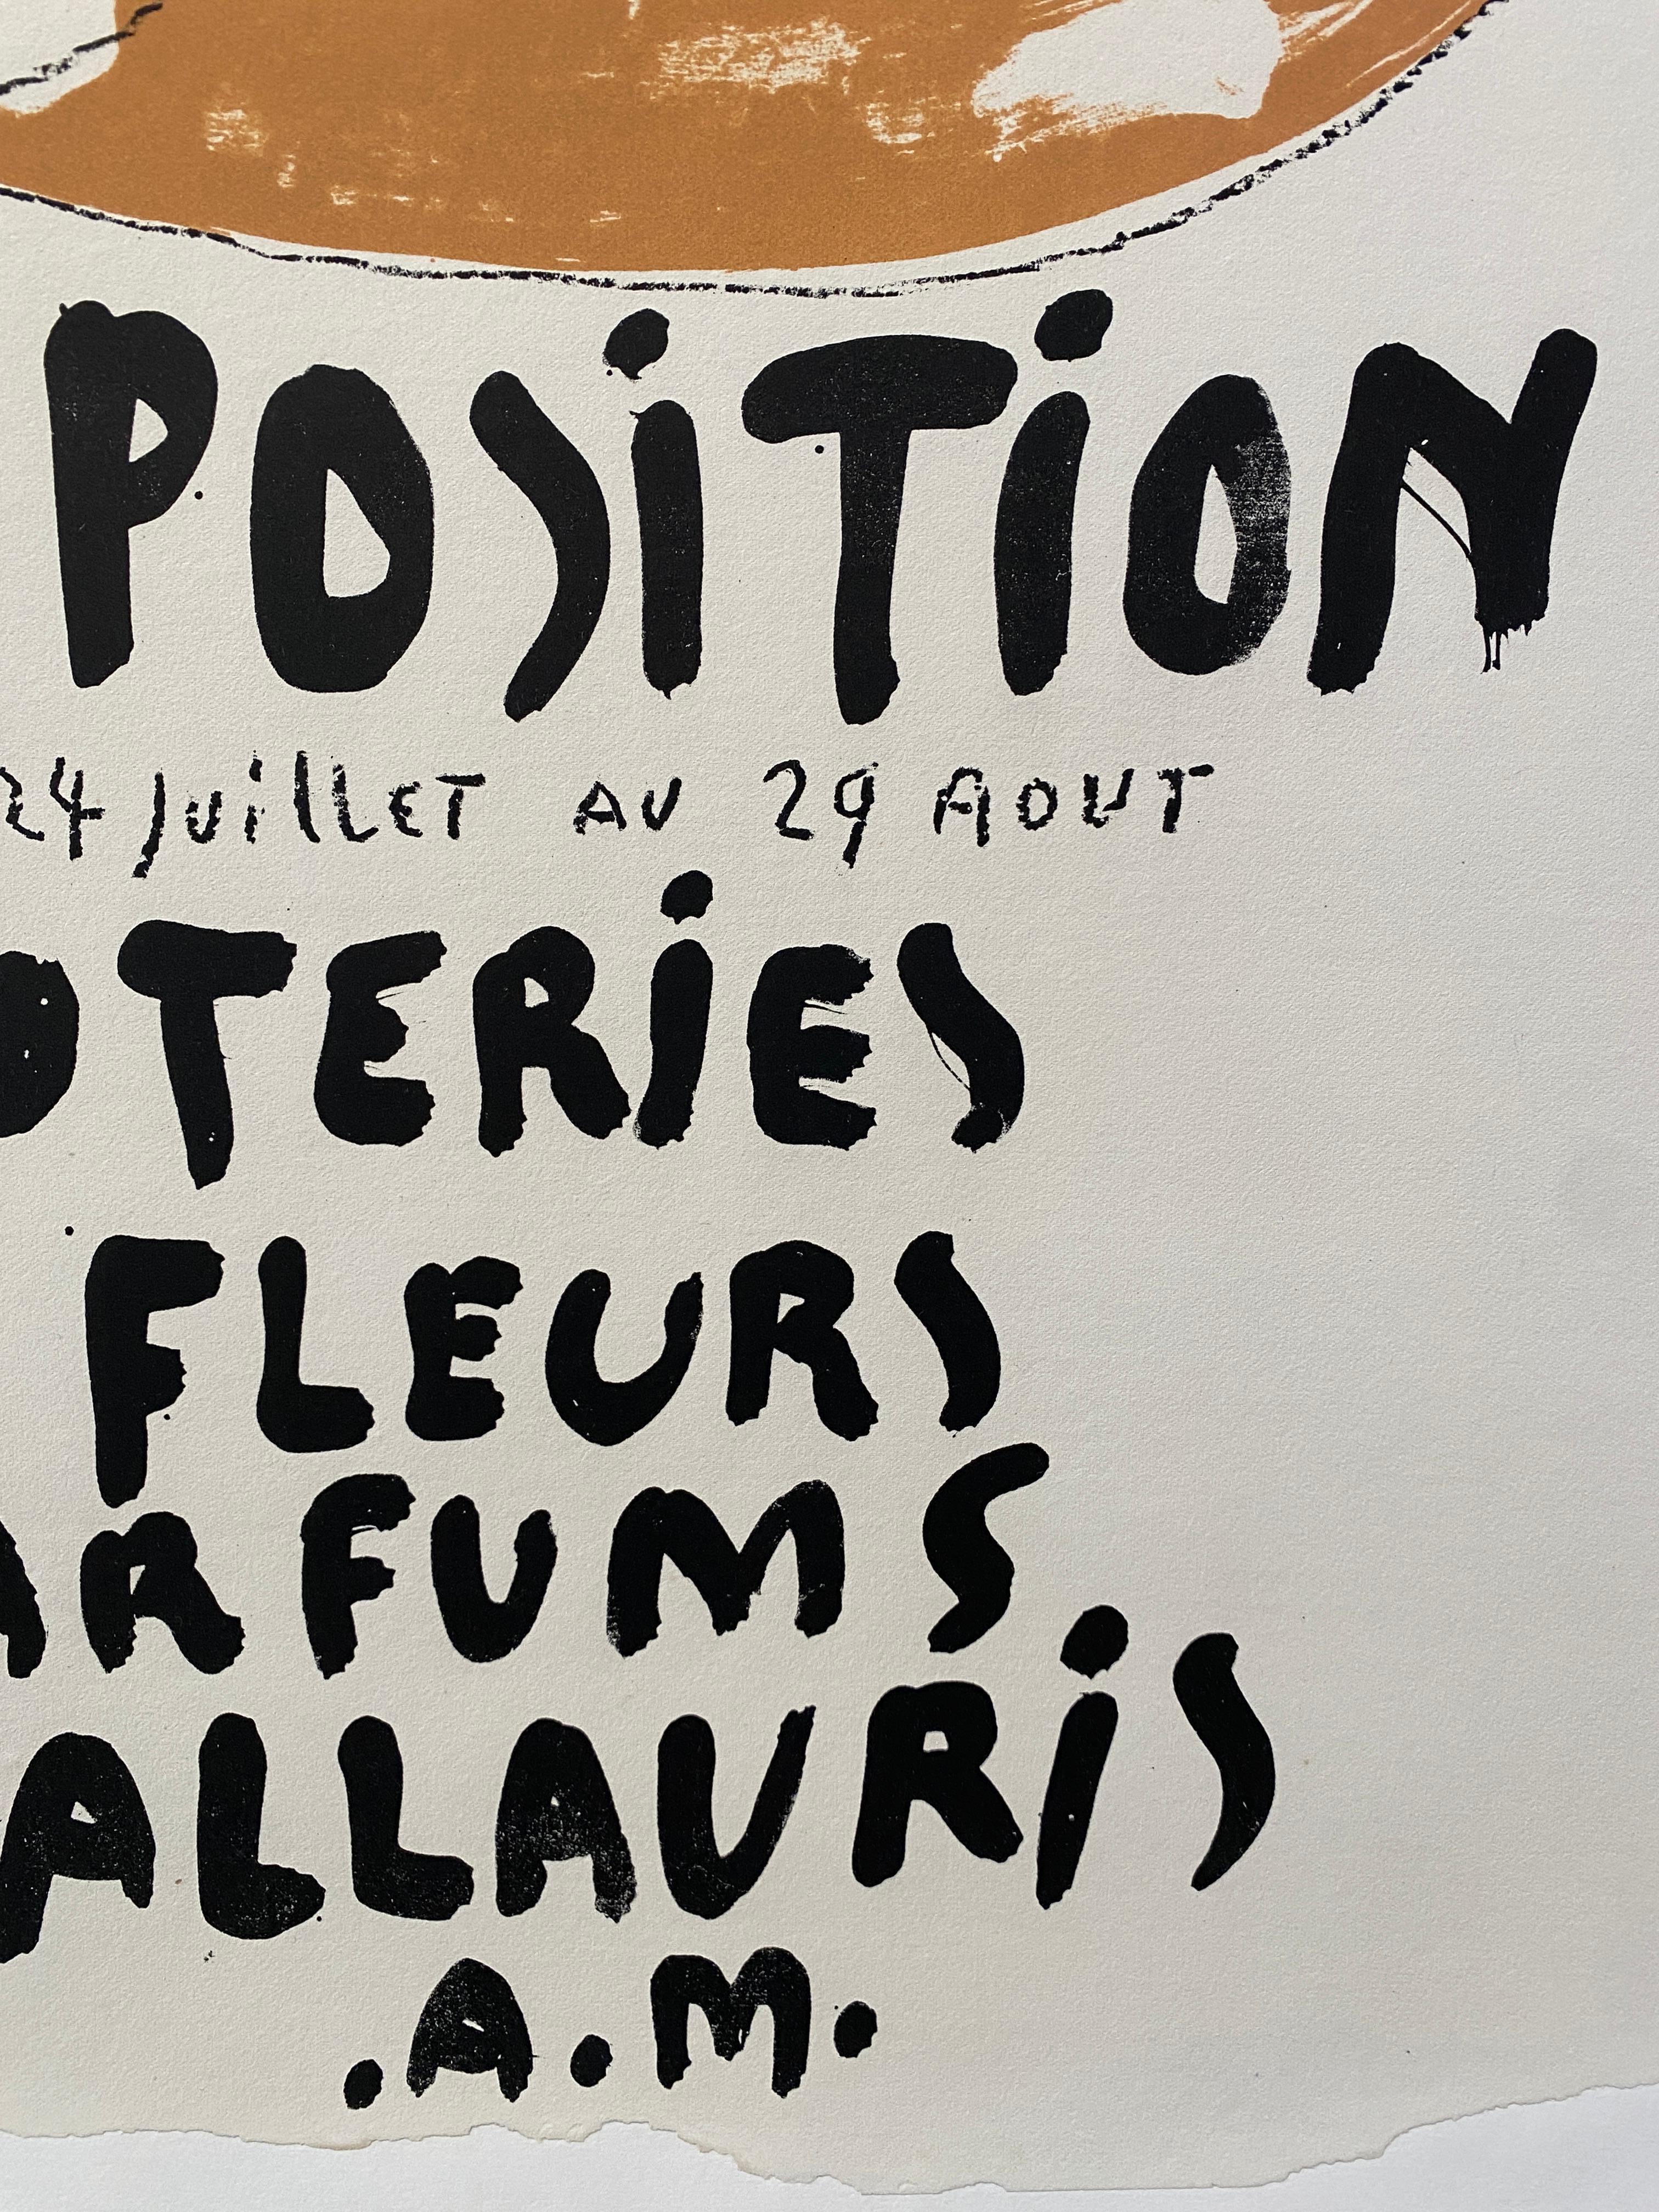 POSiTiON
24 JuillET AU 29 AOUT
OTERiES
FLEURS
ARFUMS
ALLAURiS
.A.M.